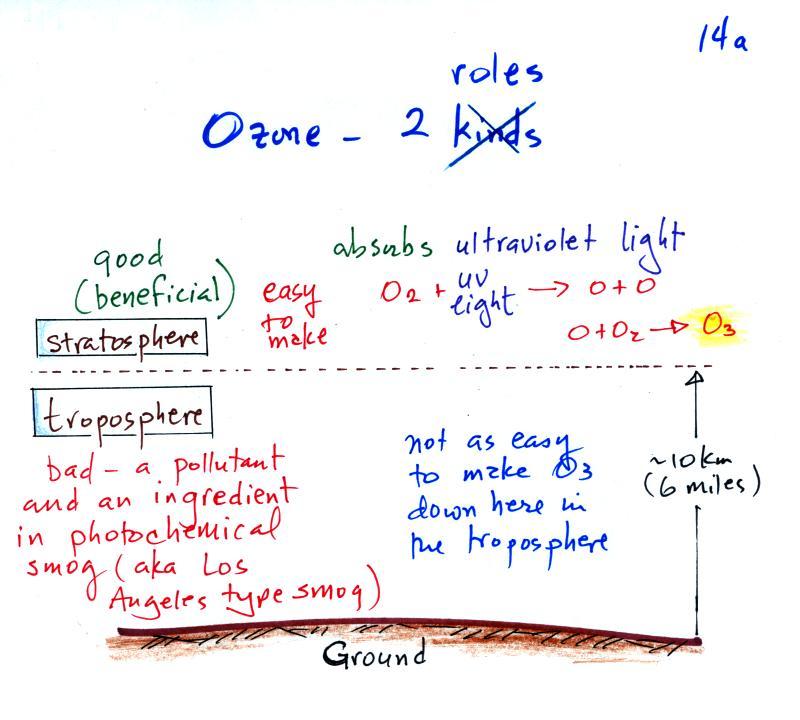 14a
roles
Ozone - 2 kinds
good
(beneficial)
absorbs ultraviolet light
easy
to
make
O2 + uv light → O + O
O + O2 → O3
stratosphere
troposphere
bad - a pollutant
and an ingredient
in photochemical
smog (aka Los
Angeles type smog)
not as easy
to make O3
down here in
the troposphere
~10 km
(6 miles)
Ground